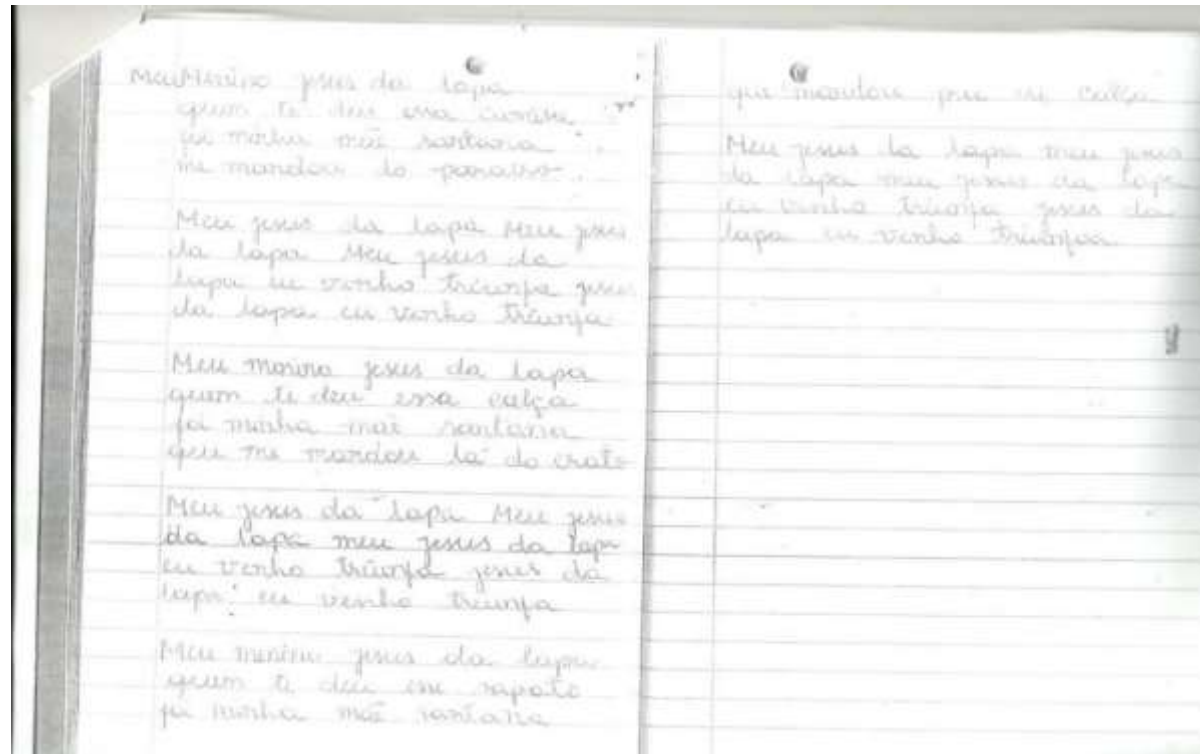 Meu Menino jesus da lapa
quem te deu essa
minha mãe santana
me mandou do paraiso
Meu jesus da lapa Meu jesus
da lapa Meu jesus da
lapa eu venho triunfa jesus
da lapa eu venho triunfa
Meu menino jesus da lapa
quem te deu essa calça
foi minha mãe santana
que me mandou lá do crato
Meu jesus da lapa Meu jesus
da lapa meu jesus da lapa
eu venho triunfa jesus da
lapa eu venho triunfa
Meu menino jesus da lapa
quem te deu esse sapato
foi minha mãe santana
que mandou calça
Meu jesus da lapa meu jesus
da lapa meu jesus da lapa
eu venho triunfa jesus da
lapa eu venho triunfa